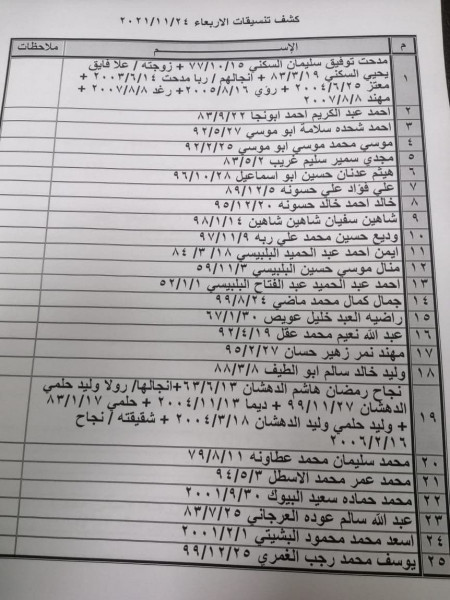 كشف تنسيقات الاربعاء ٢٠٢١/١١/٢٤
م الاســــــم ملاحظات
١ مدحت توفيق سليمان السكني ٧٧/١٠/١٥ + زوجته / علا فايق
يحيي السكني ٨٣/٣/١٩ + انجالهم / ربا مدحت ٢٠٠٣/٦/١٤ +
معتز ٢٠٠٤/٦/٢٥ + رؤي ٢٠٠٥/٨/١٦ + رغد ٢٠٠٧/٨/٨ +
مهند ٢٠٠٧/٨/٨
٢ احمد عبد الكريم احمد ابونجا ٨٣/٩/٢٢
٣ احمد شحده سلامة ابو موسي ٩٢/٥/٢٧
٤ موسي محمد موسي ابو موسي ٩٢/٢/٢٥
٥ مجدي سمير سليم غريب ٨٣/٥/٢
٦ هيثم عدنان حسين ابو اسماعيل ٩٦/١٠/٢٨
٧ علي فؤاد علي حسونه ٨٩/١٢/٥
٨ خالد احمد خالد حسونه ٩٥/١٢/٢٠
٩ شاهين سفيان شاهين شاهين ٩٨/١/١٤
١٠ وديع حسين محمد علي ربه ٩٧/١١/٩
١١ ايمن احمد عبد الحميد البلبيسي ١٨/ ٣/ ٨٤
١٢ منال موسي حسين البلبيسي ٥٩/١١/٣
١٣ احمد عبد الحميد عبد الفتاح البلبيسي ٥٢/١/١
١٤ جمال كمال محمد ماضي ٩٩/٨/٢٤
١٥ راضيه العبد خليل عويص ٦٧/١/٣٠
١٦ عبد الله نعيم محمد عقل ٩٢/٤/١٩
١٧ مهند نمر زهير حسان ٩٥/٢/٢٧
١٨ وليد خالد سالم ابو الطيف ٨٨/٣/٨
١٩ نجاح رمضان هاشم الدهشان ٦٣/٦/١٣+انجالها/ رولا وليد حلمي
الدهشان ٩٩/١١/٢٧ + ديما ٢٠٠٤/١١/١٣ + حلمي ٨٣/١/١٧
+ وليد حلمي وليد الدهشان ٢٠٠٤/٣/١٨ + شقيقته / نجاح
٢٠٠٦/٢/١٦
٢٠ محمد سليمان محمد عطاونه ٧٩/٨/١١
٢١ محمد عمر محمد الاسطل ٩٤/٥/٣
٢٢ محمد حماده سعيد البيوك ٢٠٠١/٩/٣٠
٢٣ عبد الله سالم عوده العرجاني ٨٣/٧/٢٥
٢٤ اسعد محمد محمود البشيتي ٢٠٠١/٢/١
٢٥ يوسف محمد رجب الغمري ٩٩/١٢/٢٥